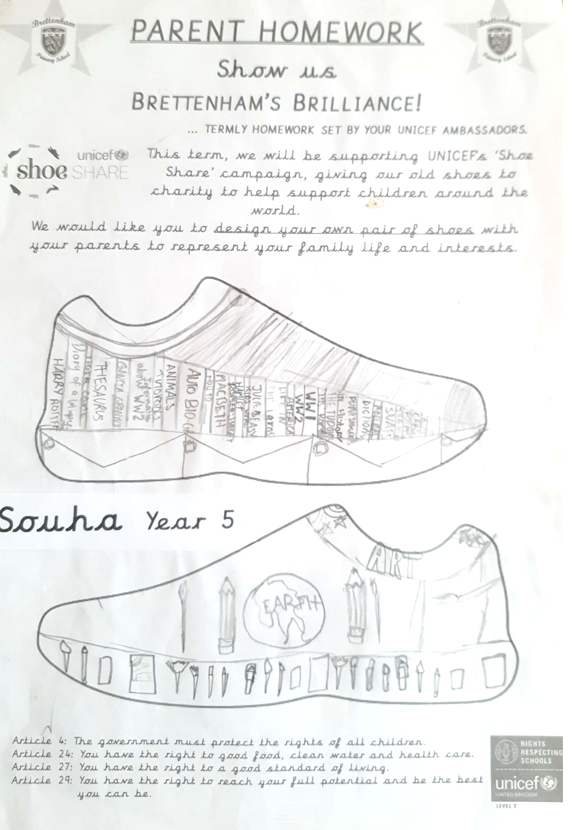 Brettenham
Primary School
Brettenham
Primary School
PARENT HOMEWORK
Show us
BRETTENHAM'S BRILLIANCE!
... TERMLY HOMEWORK SET BY YOUR UNICEF AMBASSADORS.
shoe SHARE
unicef
This term, we will be supporting UNICEF's 'Shoe
Share' campaign, giving our old shoes to
charity to help support children around the
world.
We would like you to design your own pair of shoes with
your parents to represent your family life and interests.
HARRY POTTER
Diary of a wimpy
THESAURUS
about WW2
ANIMALS
AUTO BIO-G
MACBETH
WW2
WW1
Souha Year 5
ART
EARTH
Article 4: The government must protect the rights of all children.
Article 24: You have the right to good food, clean water and health care.
Article 27: You have the right to a good standard of living.
Article 29: You have the right to reach your full potential and be the best
you can be.
RIGHTS
RESPECTING
SCHOOLS
unicef
UNITED KINGDOM
LEVEL 2